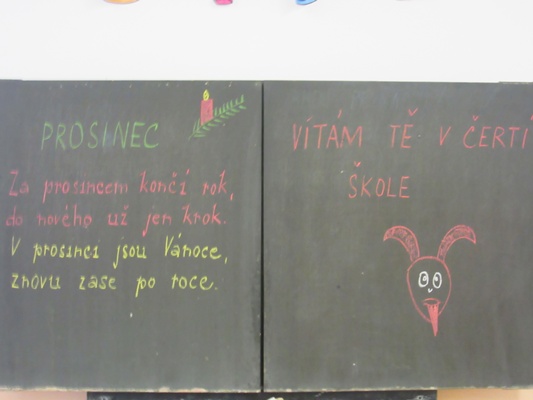 PROSINEC
Za prosincem končí rok,
do nového už jen krok.
V prosinci jsou Vánoce,
znovu zase po roce.
VÍTÁM TĚ V ČERTÍ
ŠKOLE